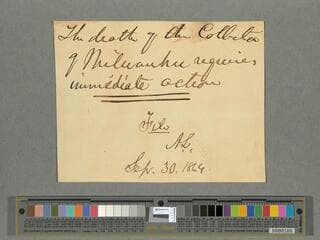 The death of the Collector
of Milwaukee requires
immediate action
File
A.L.
Sep. 30. 1864